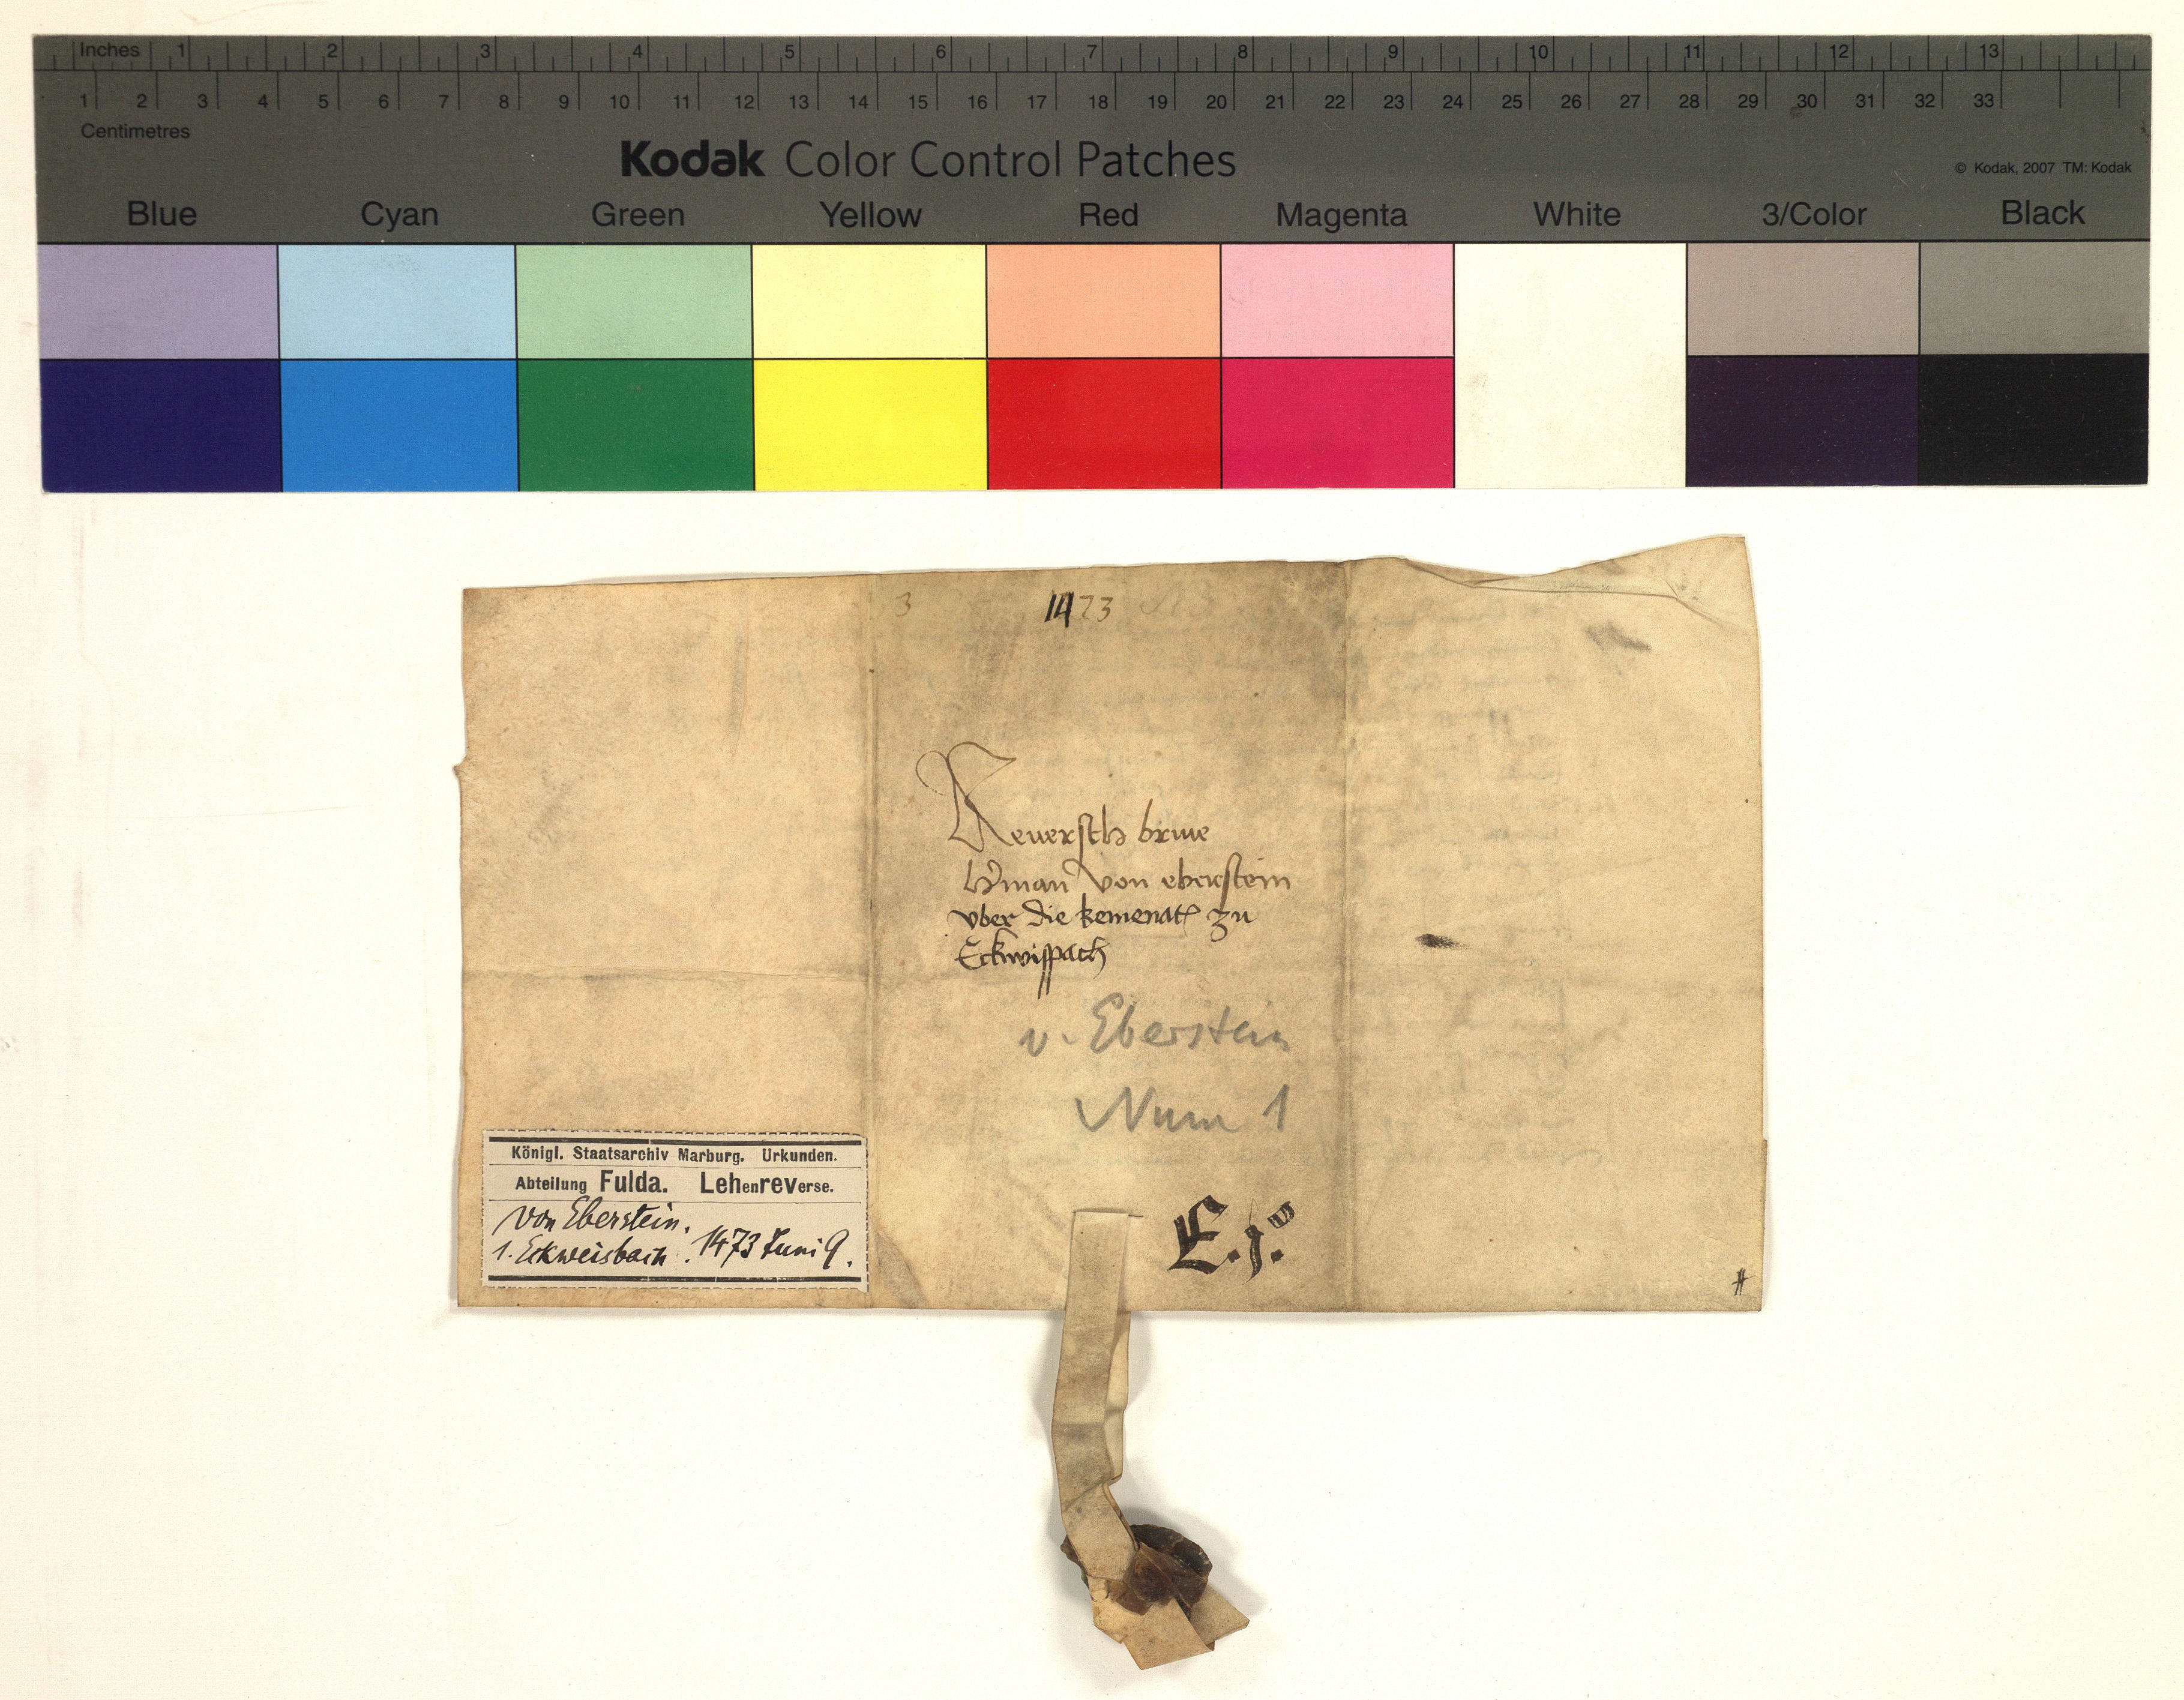 Inches 1 2 3 4 5 6 7 8 9 10 11 12 13
1 2 3 4 5 6 7 8 9 10 11 12 13 14 15 16 17 18 19 20 21 22 23 24 25 26 27 28 29 30 31 32 33
Centimetres
Kodak Color Control Patches
© Kodak, 2007 TM: Kodak
Blue Cyan Green Yellow Red Magenta White 3/Color Black
3 1473
Reuersch briue
von eberstein
vber die kemenat zu
Eckwisspach
v. Eberstein
Num 1
Königl. Staatsarchiv Marburg. Urkunden.
Abteilung Fulda. Lehenreverse.
von Eberstein.
1. Eckweisbach. 1473 Juni 9.
E.j.
#